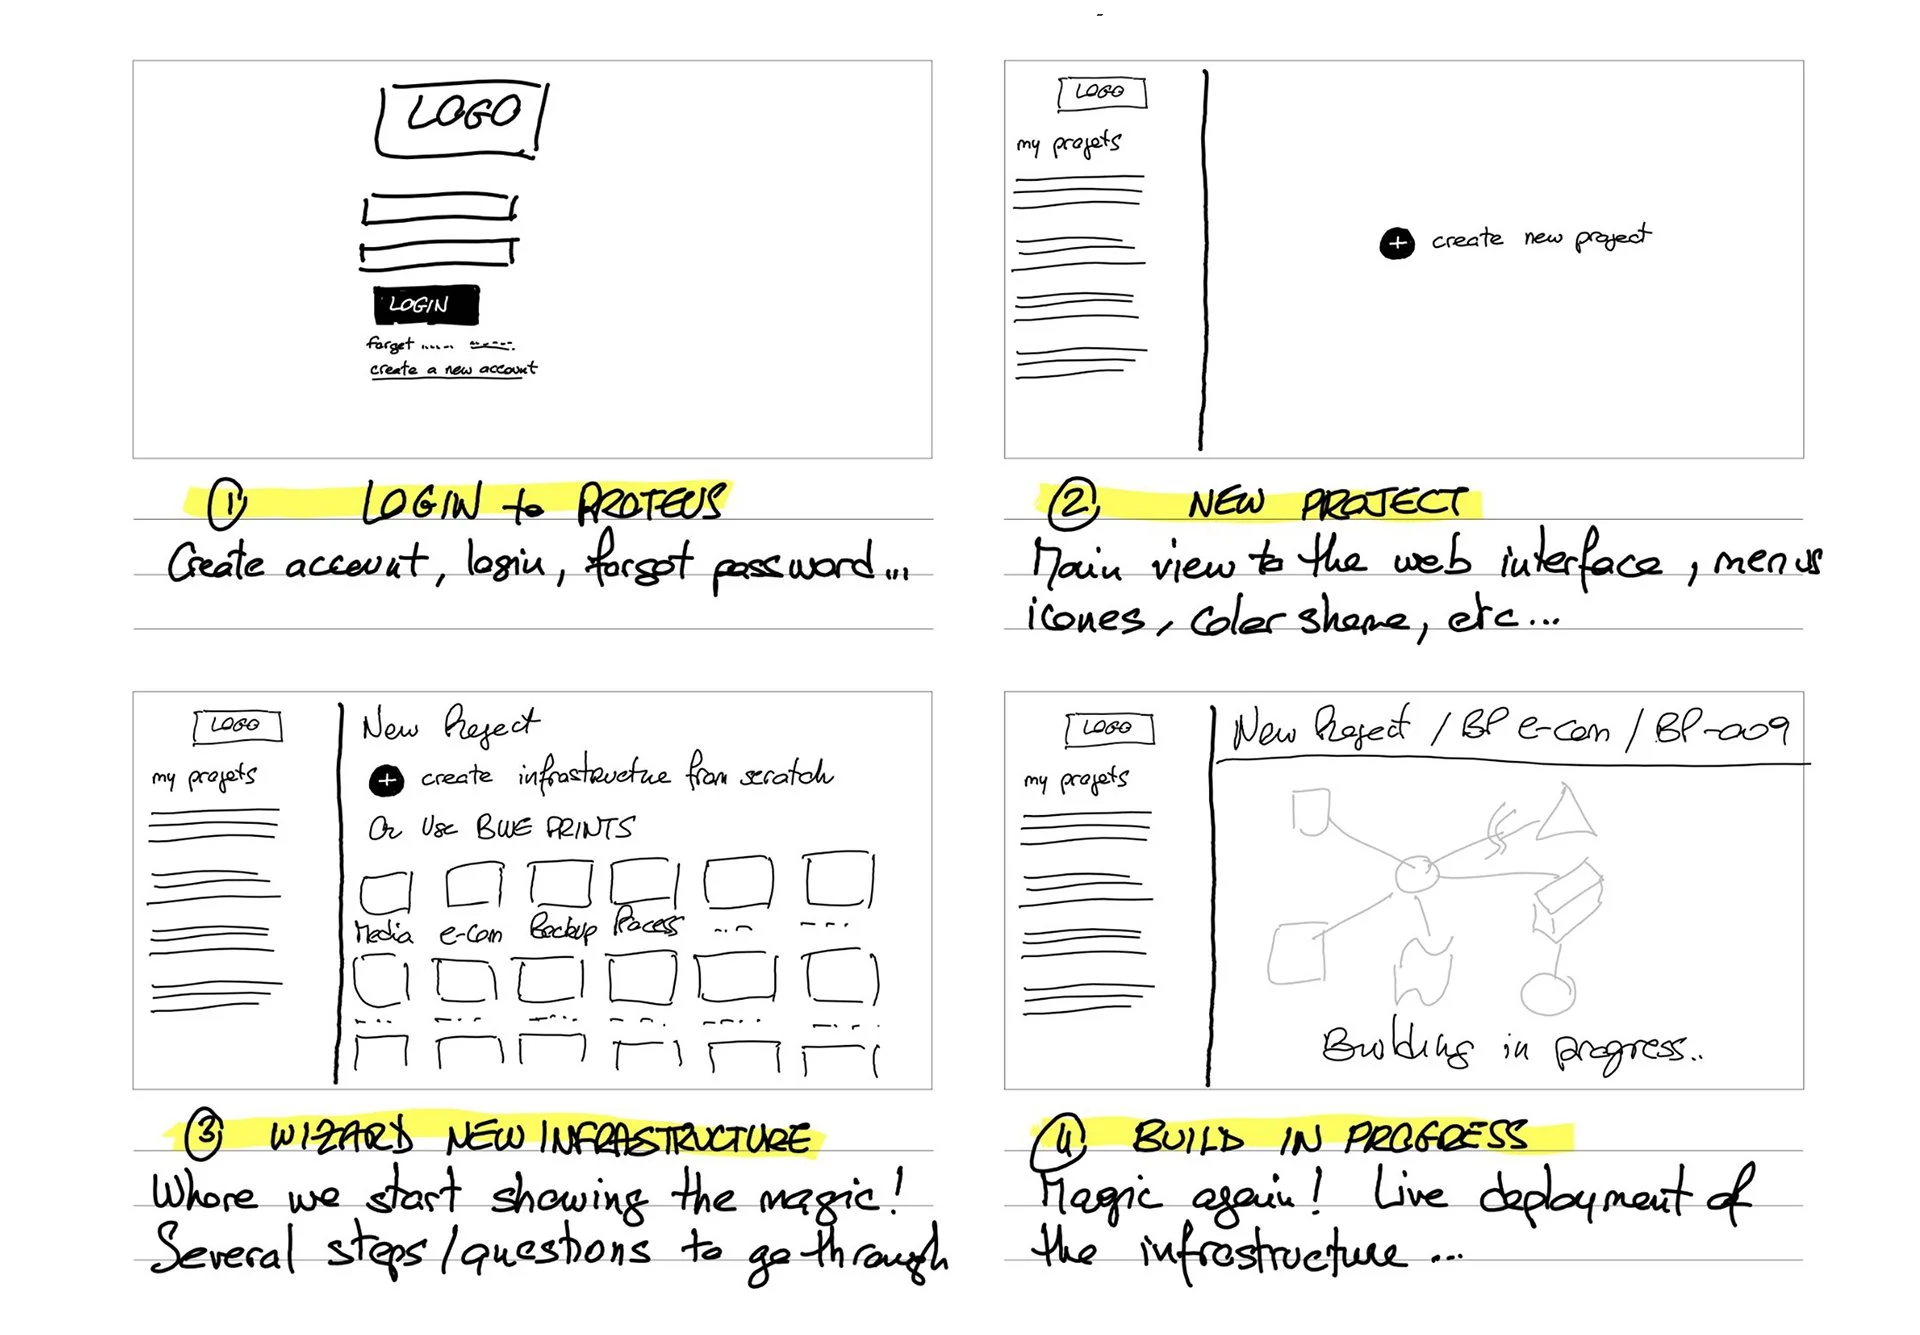 LOGO
LOGIN
forget
create a new account
① LOGIN to PROTEUS
Create account, login, forgot password...
LOGO
my projets
+ create new project
② NEW PROJECT
Main view to the web interface, menus
icones, color sheme, etc...
LOGO
my projets
New Project
+ create infrastructure from scratch
Or use BLUE PRINTS
Media e-com Backup Process
③ WIZARD NEW INFRASTRUCTURE
Where we start showing the magic!
Several steps/questions to go through
LOGO
my projets
New Project / BP e-com / BP-009
Building in progress..
④ BUILD IN PROGRESS
Magic again! Live deployment of
the infrastructure ...